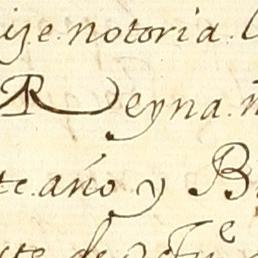 ije notoria
Reyna
te año y B
te de